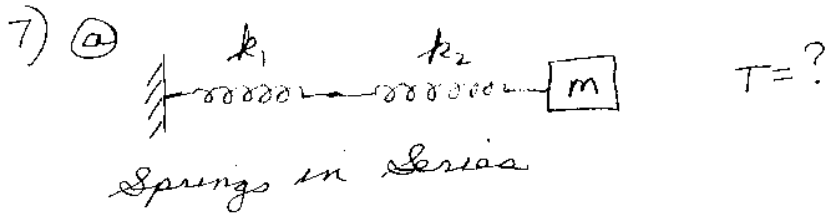 7) ⓐ
k₁ k₂
m T = ?
Springs in Series